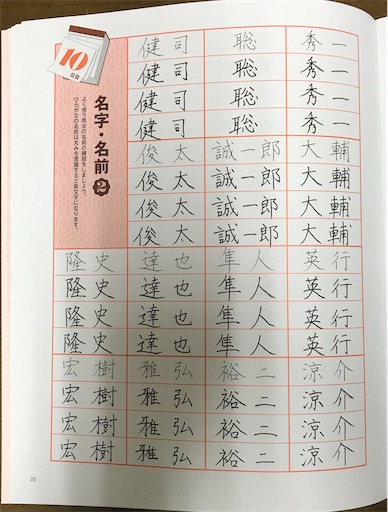 10
日目
名字・名前 2
よく使う男女の名前の練習をしましょう。
ひらがなの名前は丸みを意識すると美文字になります。
健司 聡 秀一
健司 聡 秀一
健司 聡 秀一
健司 聡 秀一
俊太 誠一郎 大輔
俊太 誠一郎 大輔
俊太 誠一郎 大輔
俊太 誠一郎 大輔
隆史 達也 隼人 英行
隆史 達也 隼人 英行
隆史 達也 隼人 英行
隆史 達也 隼人 英行
宏樹 雅弘 裕二 涼介
宏樹 雅弘 裕二 涼介
宏樹 雅弘 裕二 涼介
宏樹 雅弘 裕二 涼介
28